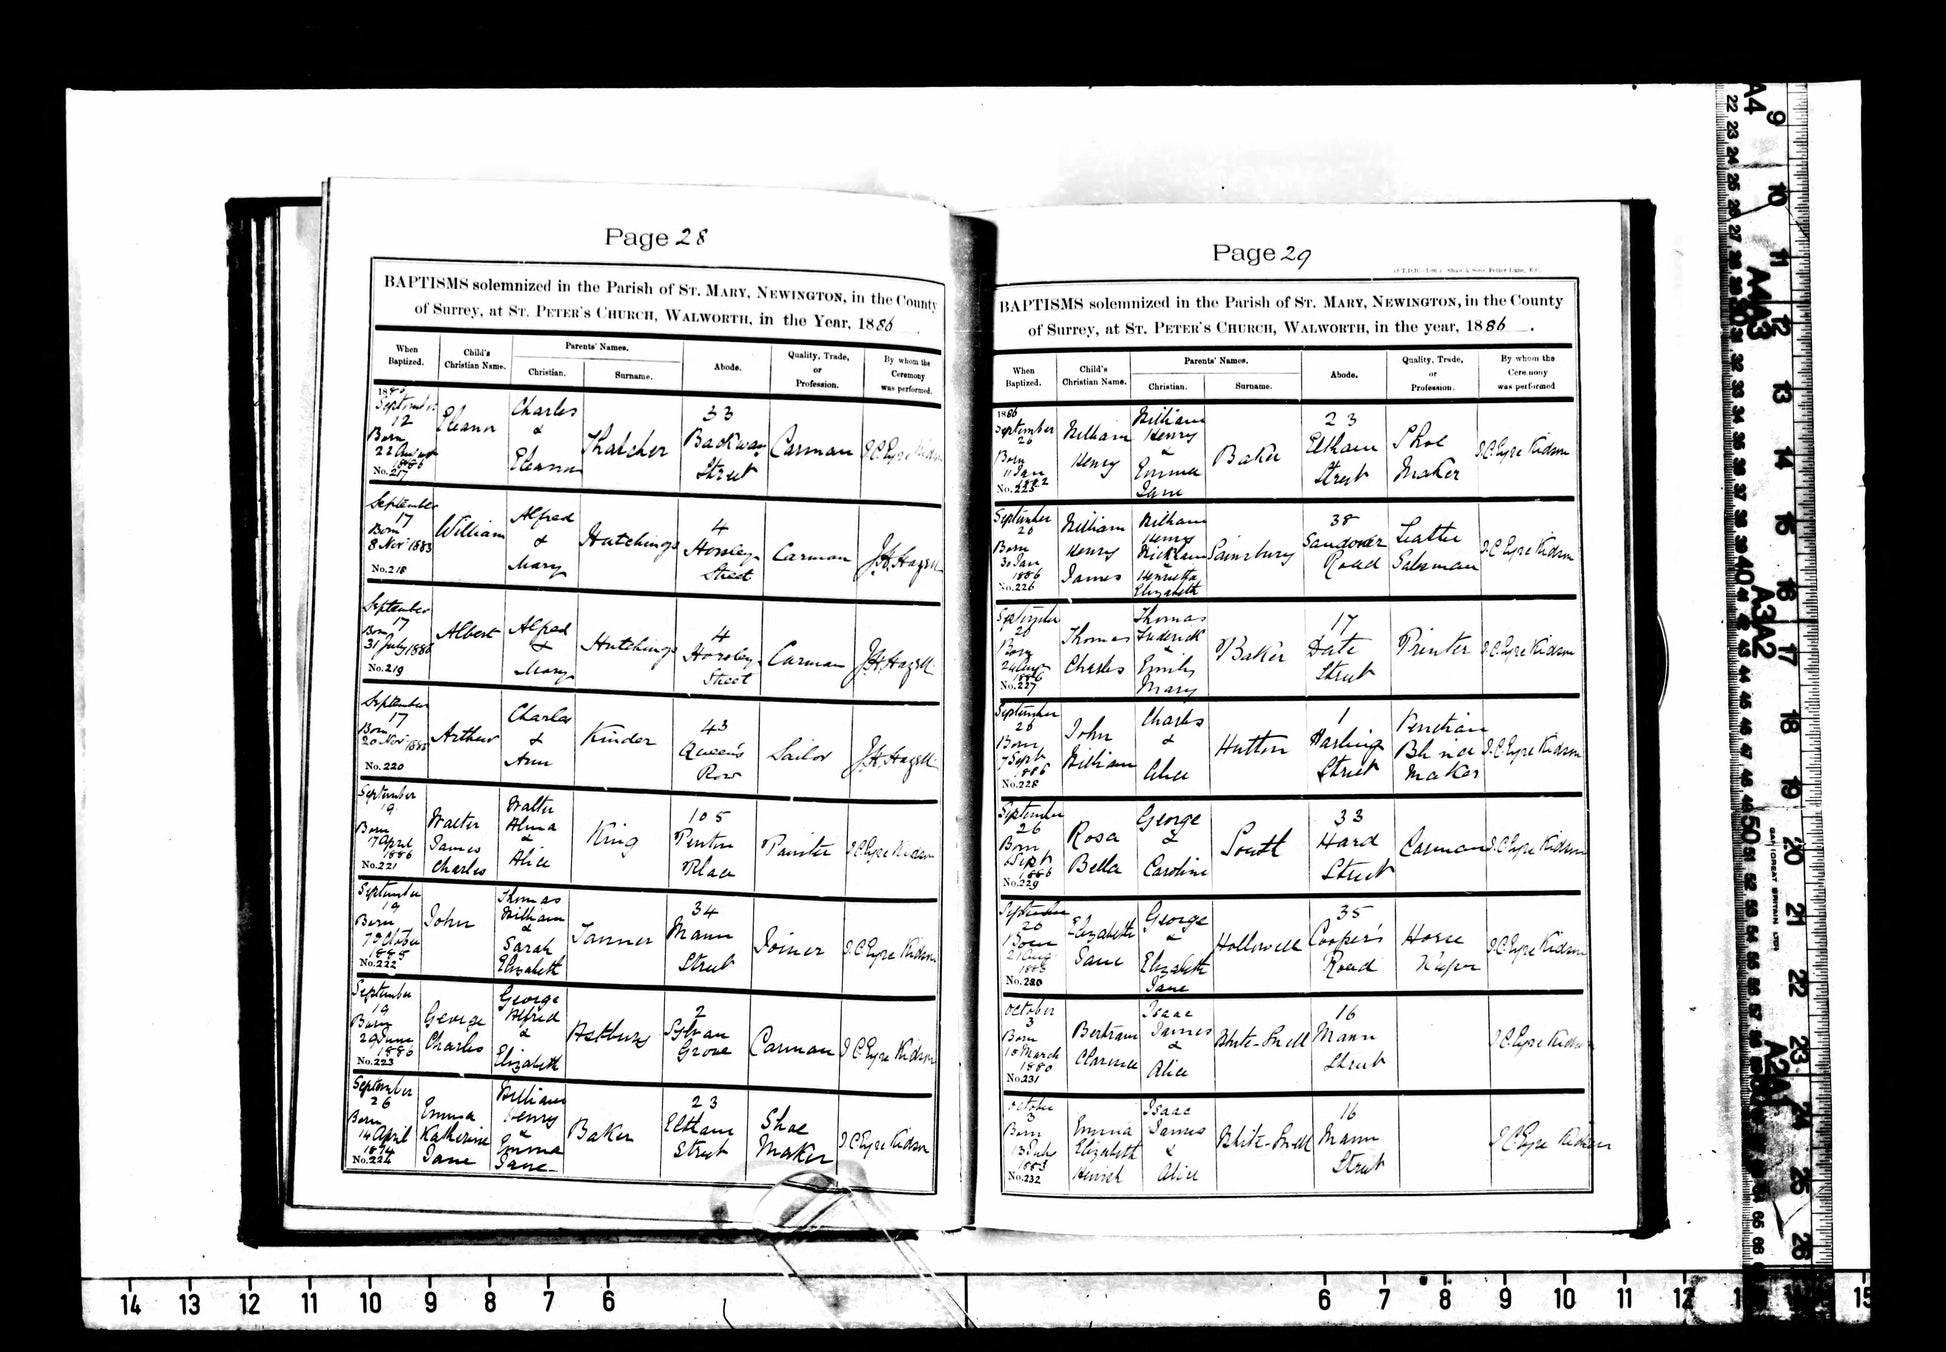 Page 28
BAPTISMS solemnized in the Parish of ST. MARY, NEWINGTON, in the County
of Surrey, at ST. PETER'S CHURCH, WALWORTH, in the Year, 1886.
When Baptized. Child's Christian Name. Parents' Names. Christian. Surname. Abode. Quality, Trade, or Profession. By whom the Ceremony was performed.
1886 September 12 Born 22 August 1886 No. 217 Eleanor Charles & Eleanor Thatcher 33 Street Carman J.C. Eyre Kidson
September 17 Born 8 Nov 1883 No. 218 William Alfred & Mary Hutchings 4 Horsley Street Carman J.H. Hazell
September 17 Born 31 July 1886 No. 219 Albert Alfred & Mary Hutchings 4 Horsley Street Carman J.H. Hazell
September 17 Born 20 Nov 1885 No. 220 Arthur Charles & Ann Kinder 43 Queen's Row Sailor J.H. Hazell
September 19 Born 17 April 1886 No. 221 Walter James Charles Walter Alma & Alice King 105 Penton Place Painter J.C. Eyre Kidson
September 19 Born 7 October 1885 No. 222 John Thomas William & Sarah Elizabeth Tanner 34 Mann Street Joiner J.C. Eyre Kidson
September 19 Born 29 June 1886 No. 223 George Charles George Alfred & Elizabeth Astbury 2 Sylvan Grove Carman J.C. Eyre Kidson
September 26 Born 14 April 1874 No. 224 Emma Katherine Jane William Henry & Emma Jane Baker 23 Eltham Street Shoe Maker J.C. Eyre Kidson
Page 29
BAPTISMS solemnized in the Parish of ST. MARY, NEWINGTON, in the County
of Surrey, at ST. PETER'S CHURCH, WALWORTH, in the year, 1886.
When Baptized. Child's Christian Name. Parents' Names. Christian. Surname. Abode. Quality, Trade, or Profession. By whom the Ceremony was performed
1886 September 26 Born 11 Jan 1882 No. 225 William Henry William Henry & Emma Jane Baker 23 Eltham Street Shoe Maker J.C. Eyre Kidson
September 26 Born 30 Jan 1886 No. 226 William Henry James William Henry & Henrietta Elizabeth Sainsbury 38 Sandover Road Leather Salesman J.C. Eyre Kidson
September 26 Born 24 Aug 1886 No. 227 Thomas Charles Thomas Frederick & Emily Mary Baker 17 Date Street Printer J.C. Eyre Kidson
September 26 Born 7 Sept 1886 No. 228 John William Charles & Alice Hutton 1 Harling Street Venetian Blind Maker J.C. Eyre Kidson
September 26 Born 6 Sept 1886 No. 229 Rosa Bella George & Caroline South 33 Hard Street Carman J.C. Eyre Kidson
September 26 Born 21 Aug No. 230 Elizabeth Jane George & Elizabeth Jane Hollowell 35 Cooper's Road Horse Keeper J.C. Eyre Kidson
October 3 Born 18 March 1880 No. 231 Bertram Clarence Isaac James & Alice White-Snell 16 Mann Street J.C. Eyre Kidson
October 3 Born 13 July 1883 No. 232 Emma Elizabeth Isaac James & Alice White-Snell 16 Mann Street J.C. Eyre Kidson
14 13 12 11 10 9 8 7 6 6 7 8 9 10 11 12